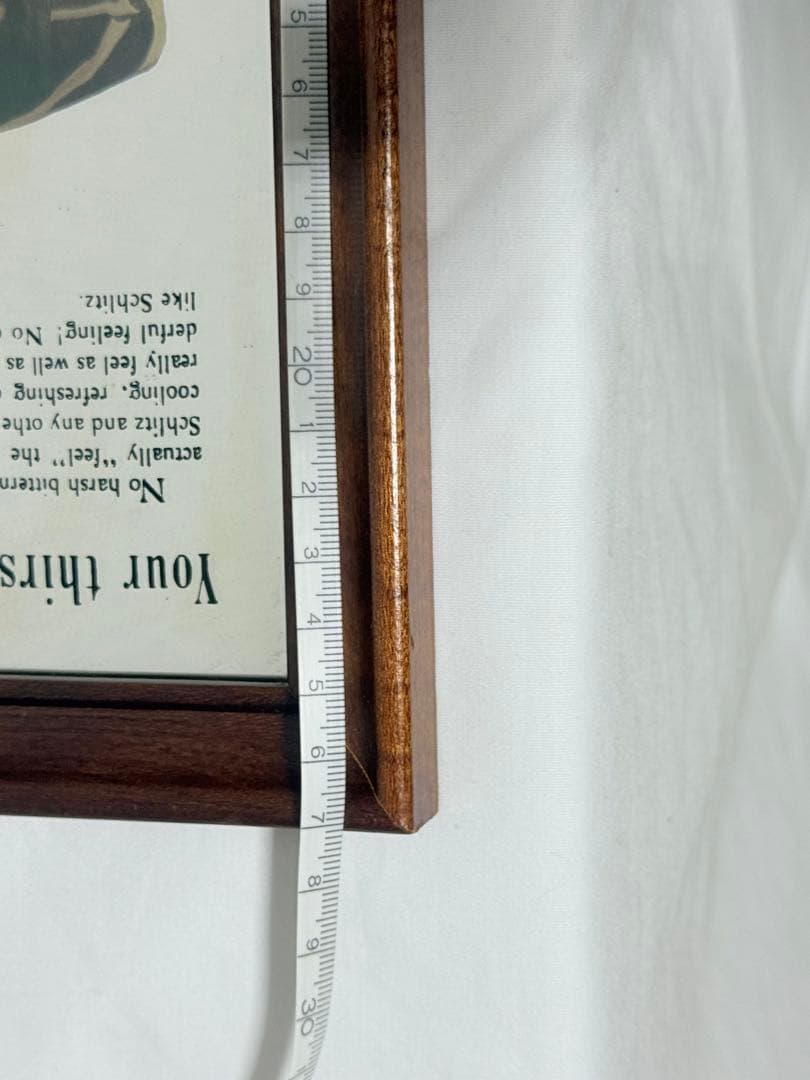 Your thirs
No harsh bittern
actually "feel" the
Schlitz and any othe
cooling, refreshing
really feel as well as
derful feeling! No
like Schlitz.
5
6
7
8
9
20
1
2
3
4
5
6
7
8
9
30